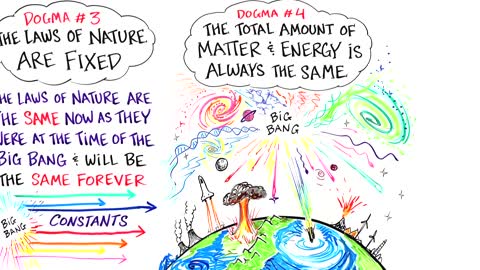 DOGMA #3
THE LAWS OF NATURE
ARE FIXED
THE LAWS OF NATURE ARE
THE SAME NOW AS THEY
WERE AT THE TIME OF THE
BIG BANG & WILL BE
THE SAME FOREVER
BIG
BANG
CONSTANTS
DOGMA #4
THE TOTAL AMOUNT OF
MATTER & ENERGY IS
ALWAYS THE SAME.
BIG
BANG